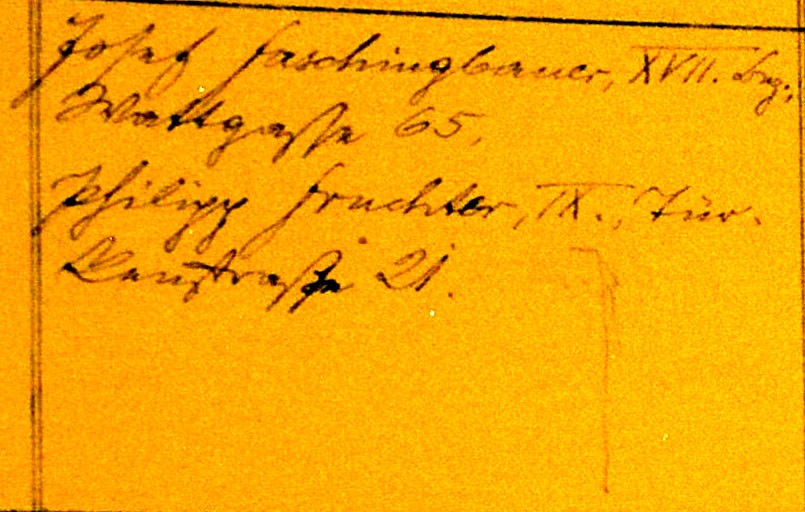 Josef Faschingbauer, XVII. Bez.,
Wattgasse 65,
Philipp Fruchter, IX., Tür-
kenstraße 21.